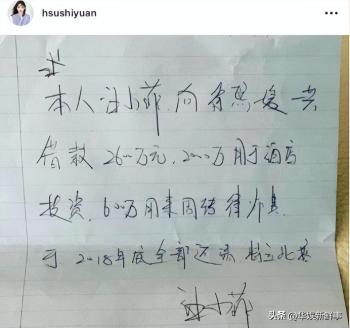 hsushiyuan
本人汪小菲,向徐熙媛共
借款2600万元,2000万用于酒店
投资,600万用来周转
于2018年底全部还清
汪小菲
头条 @华娱新鲜事